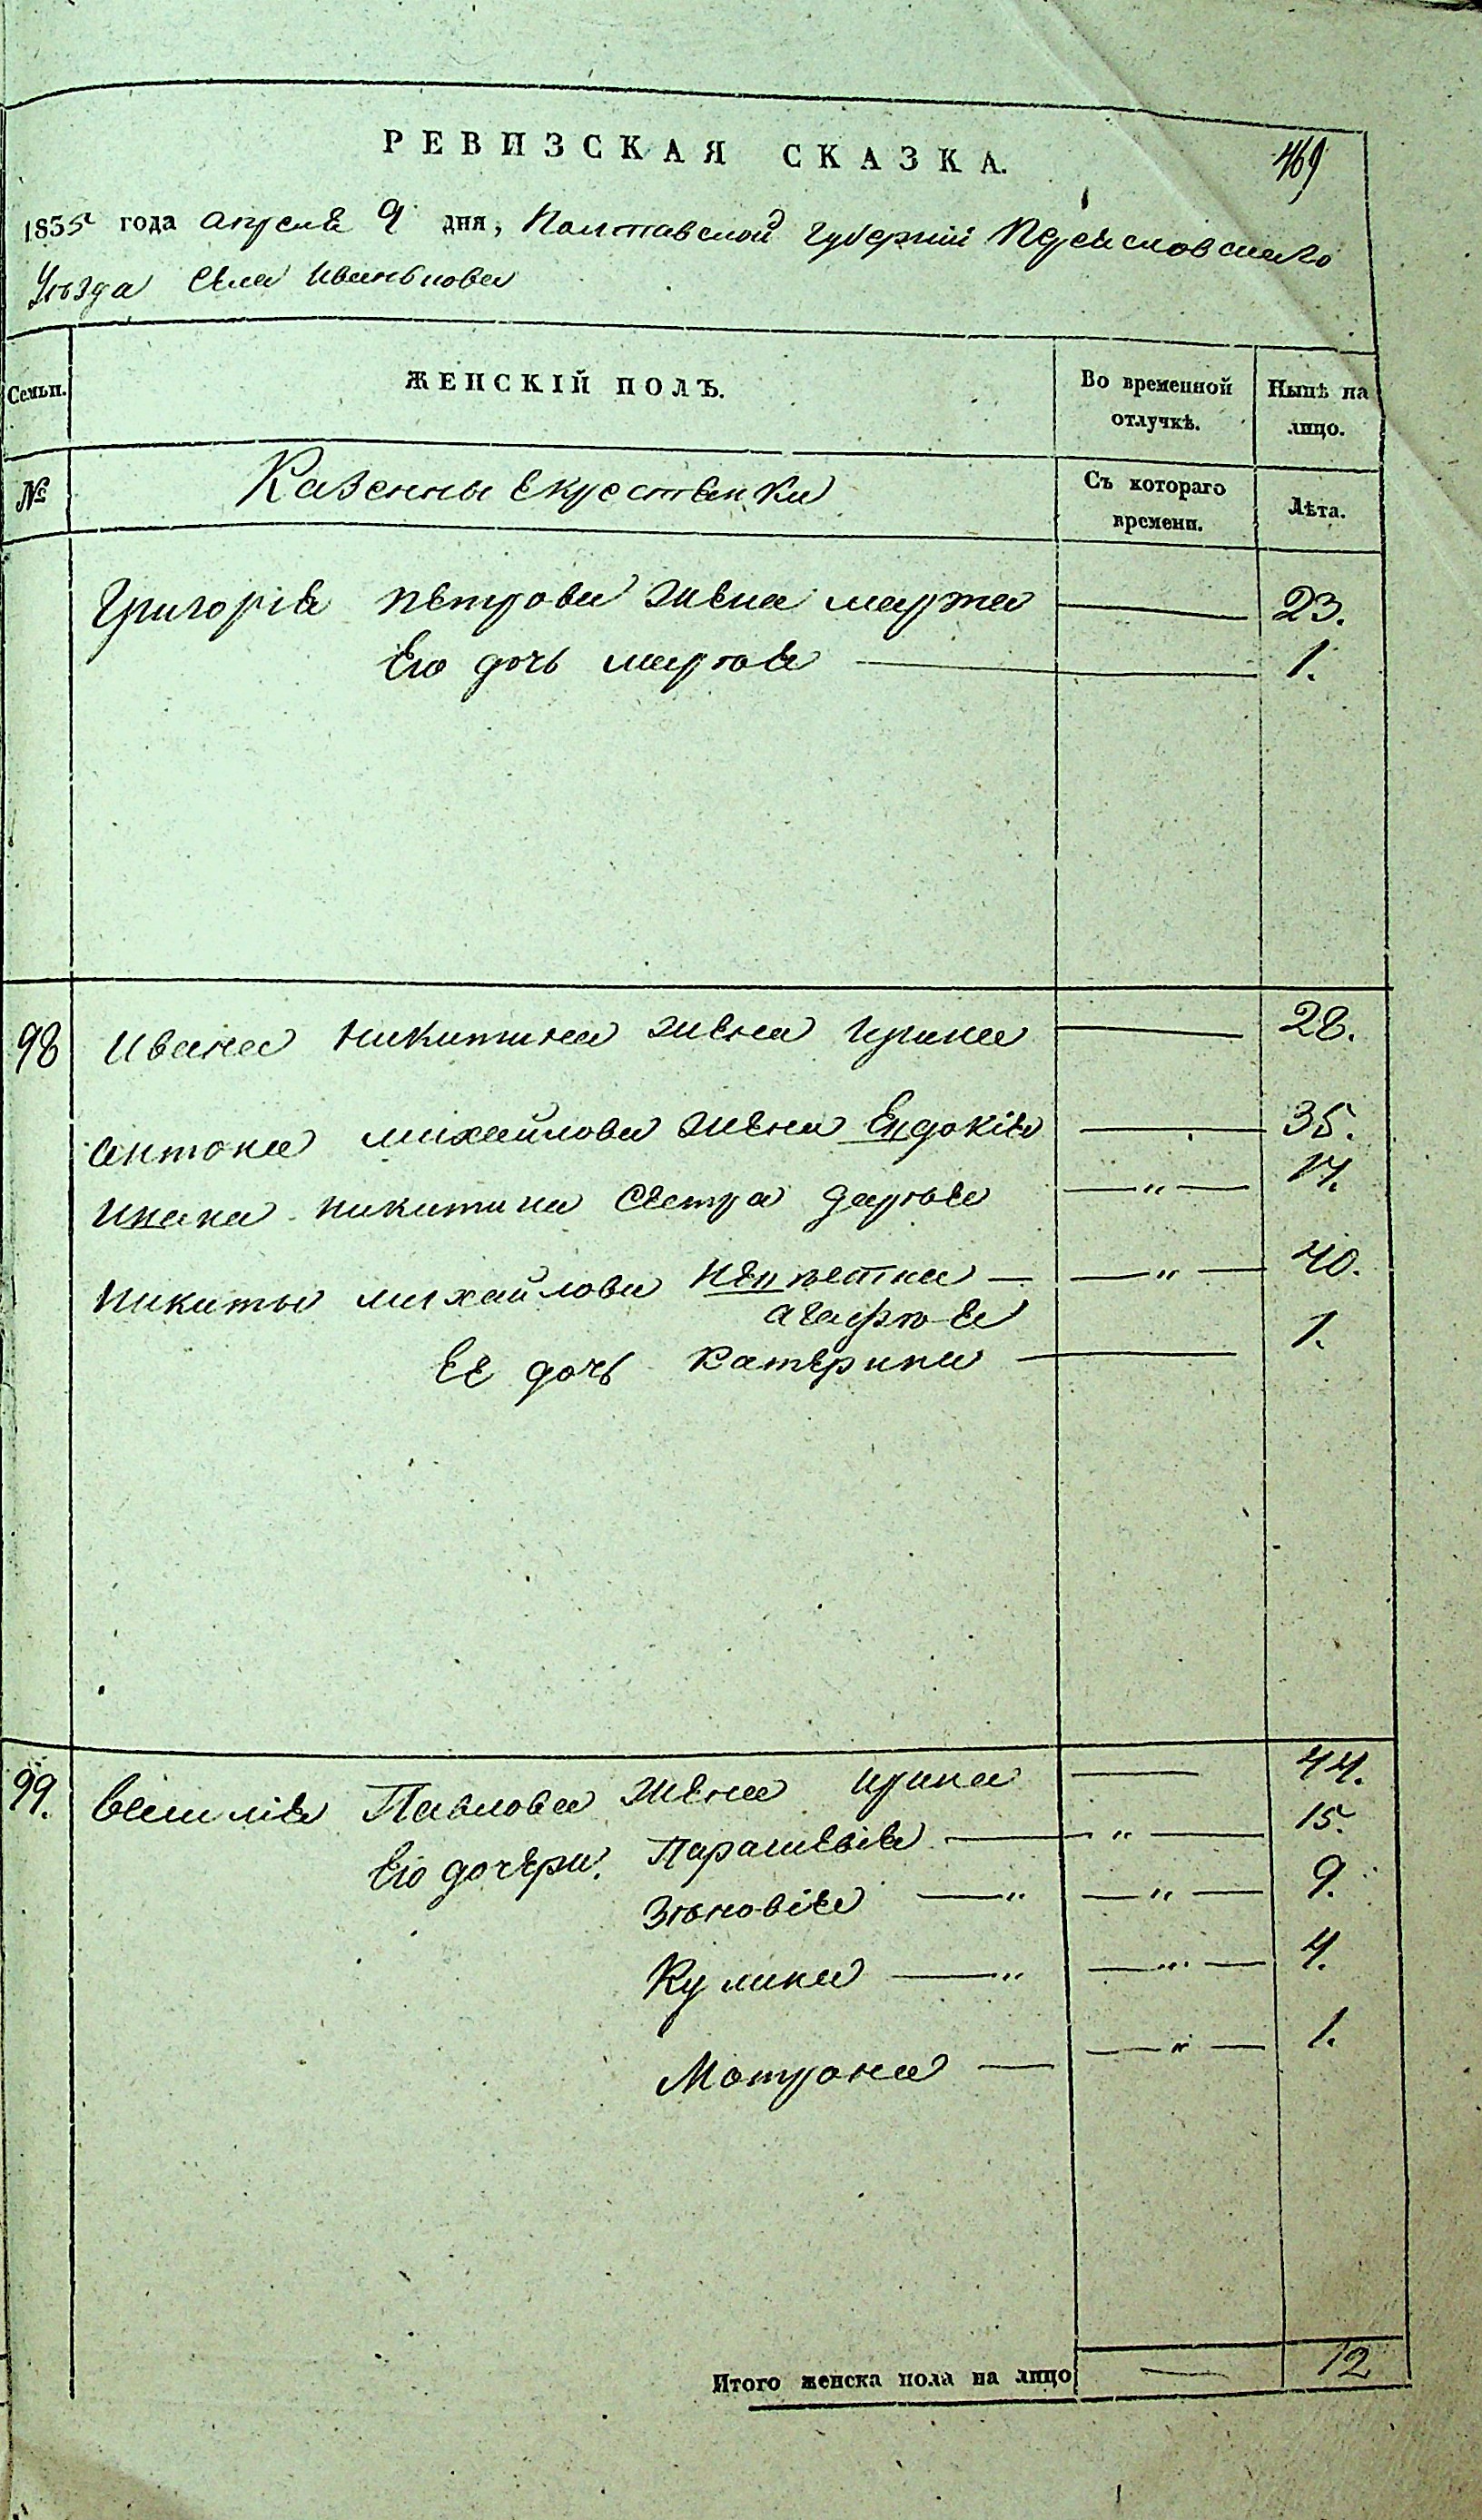 РЕВИЗСКАЯ СКАЗКА.
469
1835 года апреля 9 дня, Полтавской Губернии Переясловскаго
Уезда Села Иванькова
Семьи. ЖЕНСКІЙ ПОЛЪ. Во временной отлучкѣ. Нынѣ на лицо.
№ Казенны екрестьянки Съ котораго времени. Лѣта.
Григорія Петрова жена марфа 23.
Его дочь марья 1.
98 Ивана Никитина жена Ирина 28.
Антона михайлова жена Евдокія 35.
Ивана Никитина Сестра Дарья " 14.
Никиты михайлова Невестка " 40.
агафья
Ее дочь Катерина 1.
99. Василія Павлова жена Ирина 44.
Его дочери. Парасковія " 15.
Зѣновія " " 9.
Кулина " " 4.
Мотрона " 1.
Итого женска пола на лицо 12